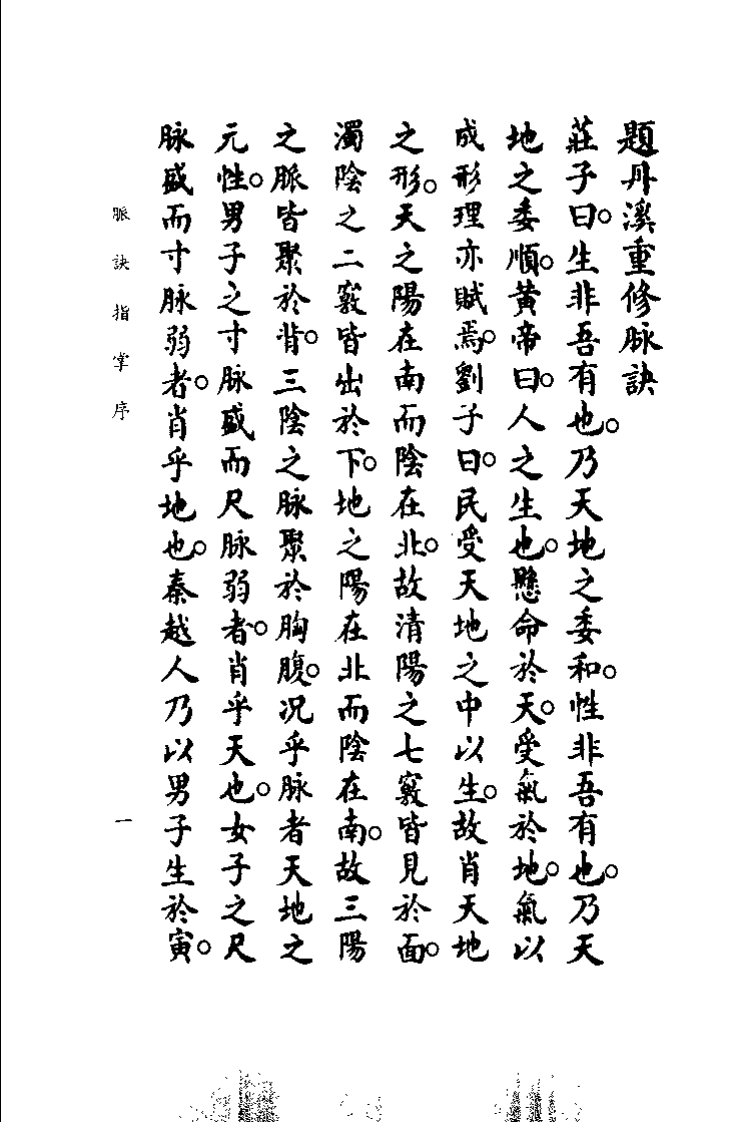 題丹溪重修脉訣
莊子曰。生非吾有也。乃天地之委和。性非吾有也。乃天
地之委順。黃帝曰。人之生也。懸命於天。受氣於地。氣以
成形理亦賦焉。劉子曰。民受天地之中以生。故肖天地
之形。天之陽在南而陰在北。故清陽之七竅皆見於面。
濁陰之二竅皆出於下。地之陽在北而陰在南。故三陽
之脈皆聚於背。三陰之脉聚於胸腹。况乎脉者天地之
元性。男子之寸脉盛而尺脉弱者。肖乎天也。女子之尺
脉盛而寸脉弱者。肖乎地也。秦越人乃以男子生於寅。
脈訣指掌序
一